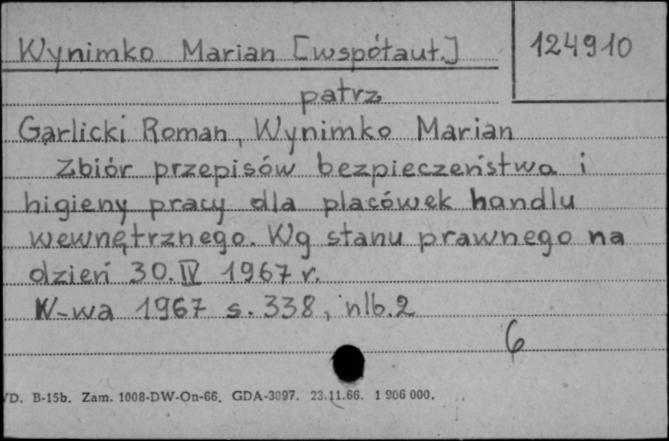 Wynimko Marian [współaut.]
124910
patrz
Garlicki Roman, Wynimko Marian
Zbiór przepisów bezpieczeństwa i
higieny pracy dla placówek handlu
wewnętrznego. Wg stanu prawnego na
dzień 30.IV 1967 r.
W-wa 1967 s. 338, nlb. 2
6
D. B-15b. Zam. 1008-DW-On-66. GDA-3097. 23.11.66. 1 906 000.